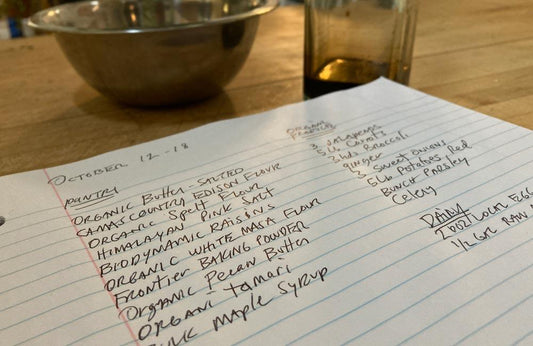 October 12-18
PANTRY
ORGANIC Butter - SALTED
CAMAS COUNTRY EDISON FLOUR
ORGANIC Spelt FLOUR
HIMALAYAN PINK SALT
BIODYNAMIC RAISINS
ORGANIC WHITE MASA FLOUR
FRONTIER BAKING POWDER
ORGANIC Pecan Butter
ORGANI tamari
MAPLE SYRUP
ORGANIC
PRODUCE
3 JALAPENOS
5 Lb CARROTS
Broccoli
ginger
3 Sweet ONIONS
5 Lb Potatoes, Red
Bunch Parsley
Celery
DAIRY
1 DOZ LOCAL EGG
1/2 GAL RAW